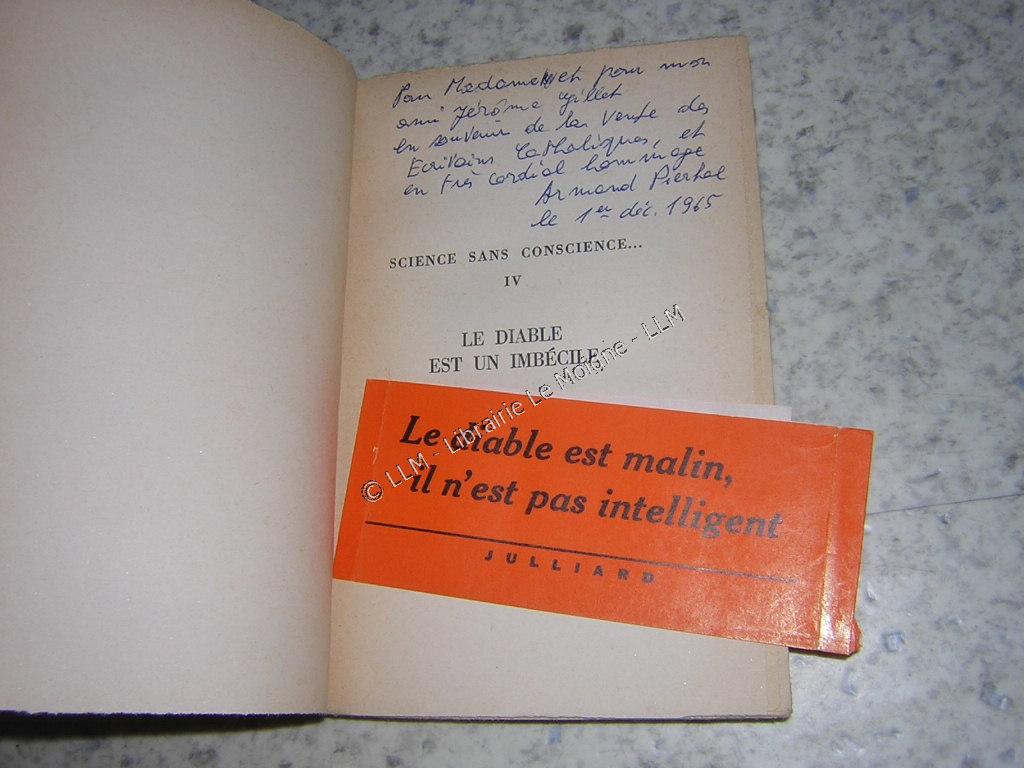 Pour Madame et pour mon
ami Jérôme Gillet
en souvenir de la Vente des
Ecrivains Catholiques, et
en très cordial hommage
Armand Pierhal
le 1er déc. 1965
SCIENCE SANS CONSCIENCE...
IV
LE DIABLE
EST UN IMBÉCILE
© LLM - Librairie Le Moigne - LLM
Le diable est malin,
il n'est pas intelligent
JULLIARD